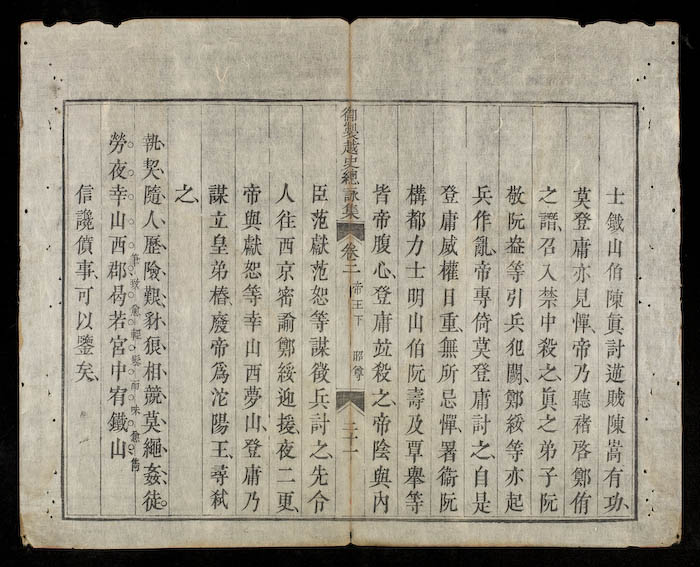 士鐵山伯陳眞討逆賊陳暠有功、
莫登庸亦見憚、帝乃聽褚啓鄭侑
之譖、召入禁中殺之、眞之弟子阮
敬阮盎等引兵犯闕、鄭綏等亦起
兵作亂、帝專倚莫登庸討之、自是
登庸威權日重無所忌憚、署衞阮
構都力士明山伯阮壽及覃舉等
皆帝腹心、登庸竝殺之、帝陰與內
御製越史總詠集
卷二
帝王下
二十一
臣范獻范恕等謀徵兵討之、先令
人往西京密諭鄭綏迎援、夜二更、
帝與獻恕等幸山西夢山、登庸乃
謀立皇弟椿、廢帝爲沱陽王、尋弒
之、
執契隨人歷險艱、豺狼相競莫繩姦、徒
勞夜幸山西郡、曷若宮中宥鐵山
筆致愈輕、髮而味愈雋
信讒僨事、可以鑒矣、